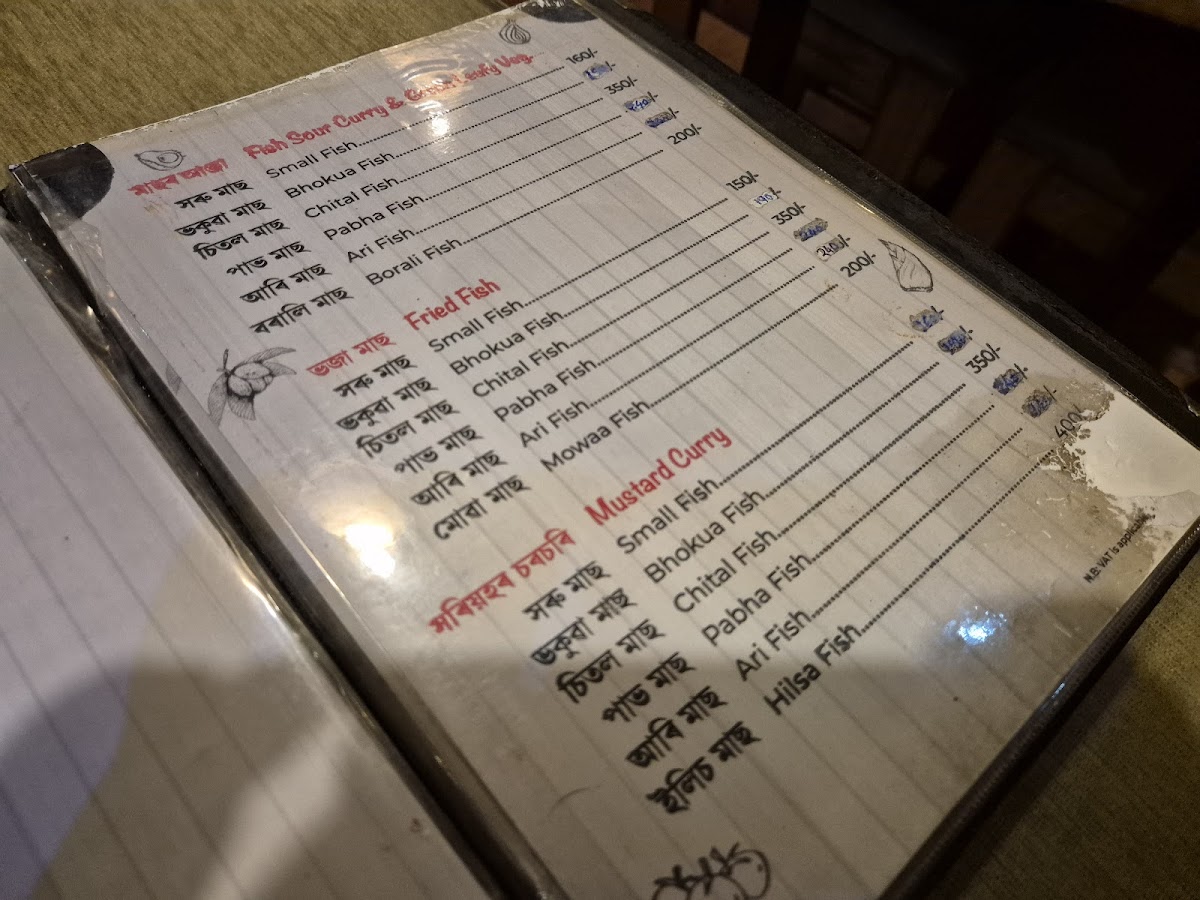 মাছৰ আঞ্জা Fish Sour Curry & Green Leafy Veg.
সৰু মাছ Small Fish 160/-
ভকুৱা মাছ Bhokua Fish
চিতল মাছ Chital Fish 350/-
পাভ মাছ Pabha Fish 240/-
আৰি মাছ Ari Fish
বৰালি মাছ Borali Fish 200/-
ভজা মাছ Fried Fish
সৰু মাছ Small Fish 150/-
ভকুৱা মাছ Bhokua Fish 190/-
চিতল মাছ Chital Fish 350/-
পাভ মাছ Pabha Fish 240/-
আৰি মাছ Ari Fish 240/-
মোৱা মাছ Mowaa Fish 200/-
সৰিয়হৰ চৰচৰি Mustard Curry
সৰু মাছ Small Fish
ভকুৱা মাছ Bhokua Fish
চিতল মাছ Chital Fish 350/-
পাভ মাছ Pabha Fish
আৰি মাছ Ari Fish
ইলিচ মাছ Hilsa Fish 400
N.B: VAT is